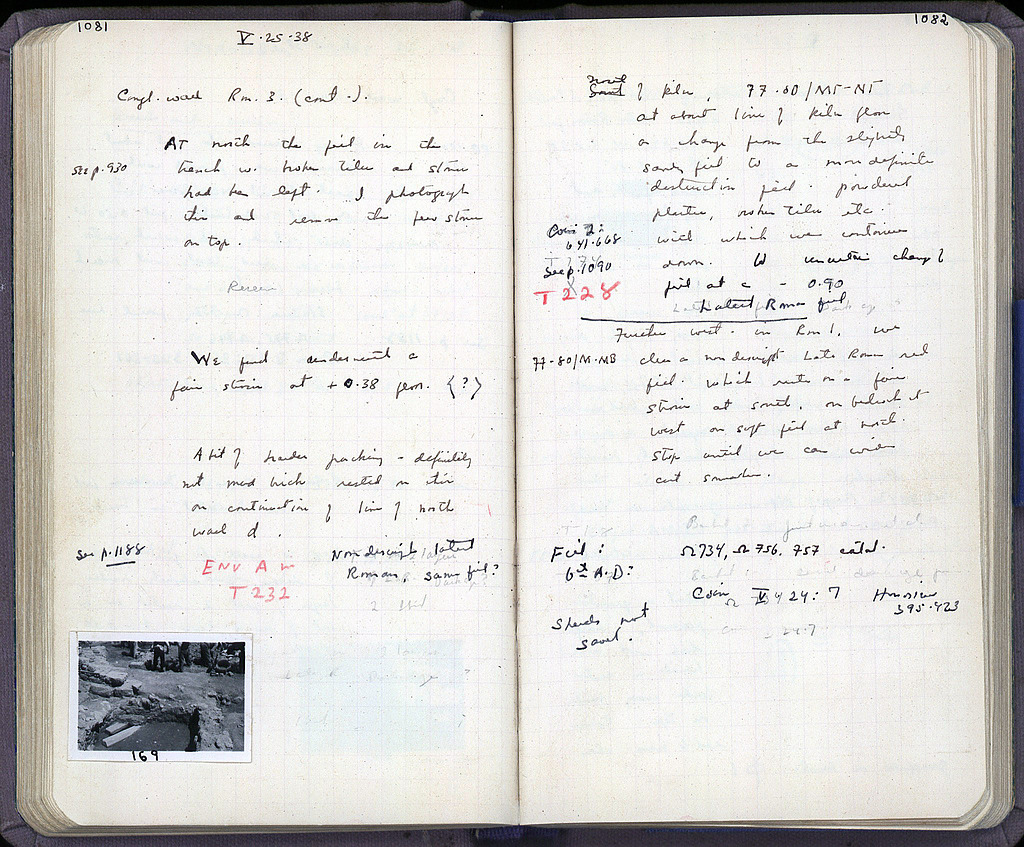 1081
V.25.38
Congl. wall Rm. 3. (cont.).
AT north the fill in the
See p. 930
trench w. broken tiles and stones
had been left. I photograph
this and remove the few stones
on top.
We find underneath a
fair strosis at + 0.38 floor. {?}
A bit of harder packing - definitely
not mud brick rested on this
on continuation of line of north
wall d.
See p. 1188
ENV A
T 232
Nondescript latest
Roman, same fill?
169
1082
North
South of kiln, 77.80/MT-NT
at about line of kiln floor
a change from the slightly
sandy fill to a more definite
destruction fill. powdered
plaster, broken tiles etc.
Coin 2:
641-668
with which we continue
See p. 1090
down. uncertain change
T 228
fill at c - 0.90
Latest Roman fill
Further west. in Rm 1, we
77-80/M-MB
clear a nondescript Late Roman red
fill. which rests on a fair
strosis at south, on bedrock at
west on soft fill at north.
Stop until we can widen
cut somewhat.
Fill:
Ω 734, Ω 756, 757 catal.
6th A.D.?
Coin V 424: 7 Honorius
395-423
Sherds not
saved.